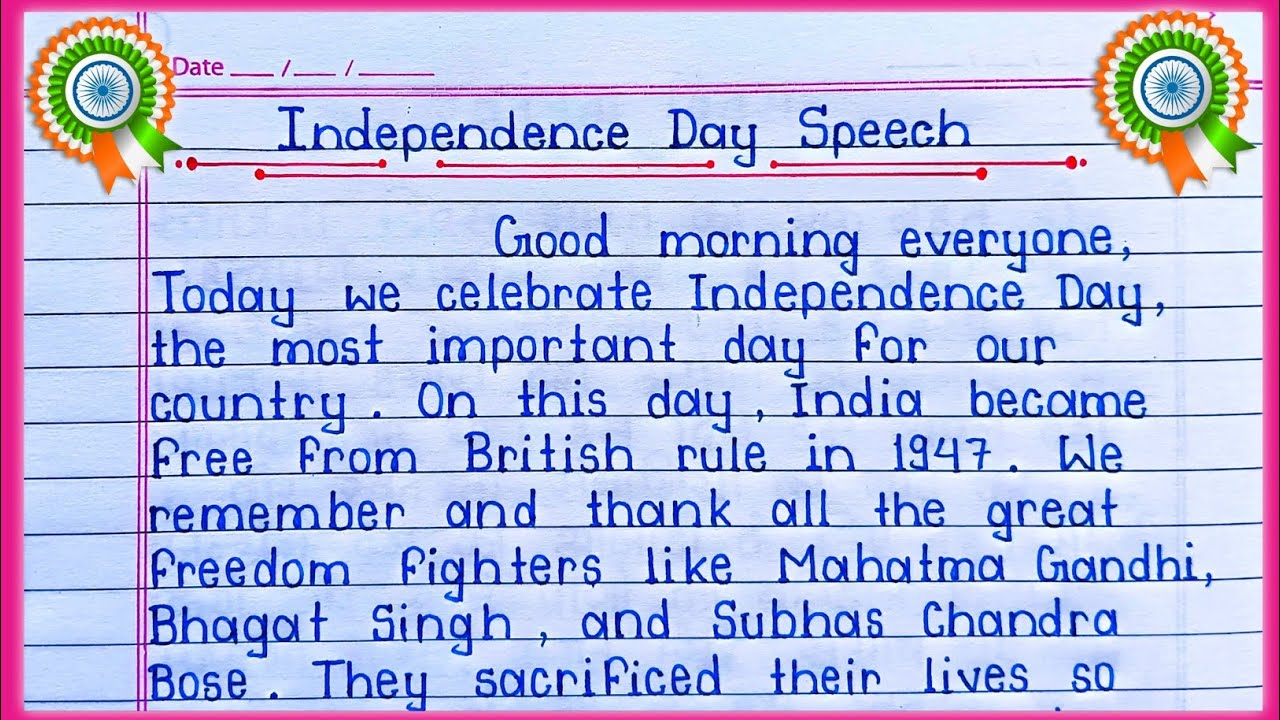 Date ___ / ___ / _____
Independence Day Speech
Good morning everyone,
Today we celebrate Independence Day,
the most important day for our
country. On this day, India became
free from British rule in 1947. We
remember and thank all the great
freedom fighters like Mahatma Gandhi,
Bhagat Singh, and Subhas Chandra
Bose. They sacrificed their lives so